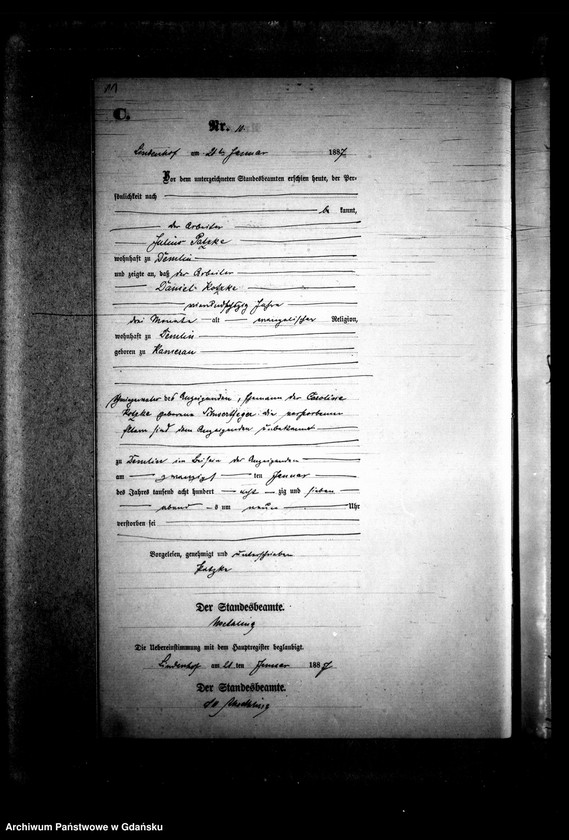 C.
Nr. 11.
Lindenhof am 21 ten Januar 1887
Vor dem unterzeichneten Standesbeamten erschien heute, der Per-
sönlichkeit nach
be kannt,
der Arbeiter
Julius Patzke
wohnhaft zu Demlin
und zeigte an, daß der Arbeiter
Daniel Kotzke
Jahre
drei Monate alt evangelischer Religion,
wohnhaft zu Demlin
geboren zu Kamerau
des Anzeigenden, Ehemann der Caroline
Kotzke geborene die verstorbenen
Eltern sind dem Anzeigenden unbekannt
zu Demlin im Beisein des Anzeigenden
am zwanzigs ten Januar
des Jahres tausend acht hundert acht zig und sieben
abend s um neun Uhr
verstorben sei
Vorgelesen, genehmigt und unterschrieben
Patzke
Der Standesbeamte.
Die Uebereinstimmung mit dem Hauptregister beglaubigt.
Lindenhof am 21 ten Januar 1887
Der Standesbeamte.
Archiwum Państwowe w Gdańsku